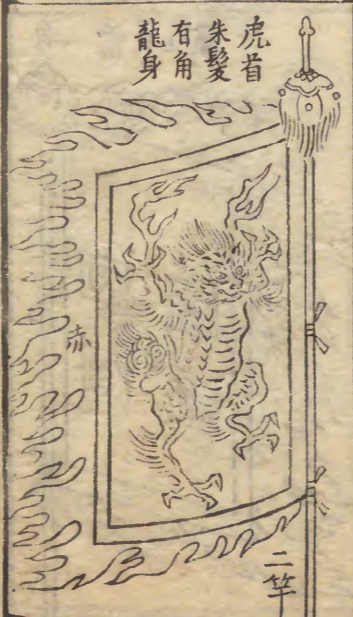 虎首
朱髮
有角
龍身
赤
二竿